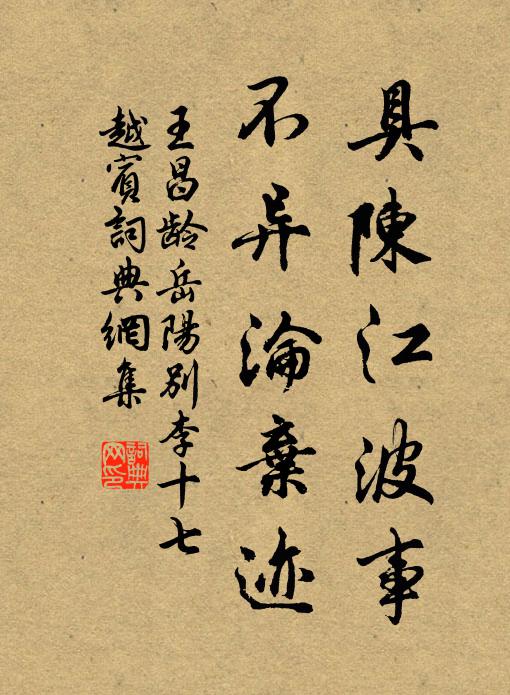 具陳江波事
不异淪棄迹
王昌龄岳陽別李十七
越賓詞典網集
詞典网印